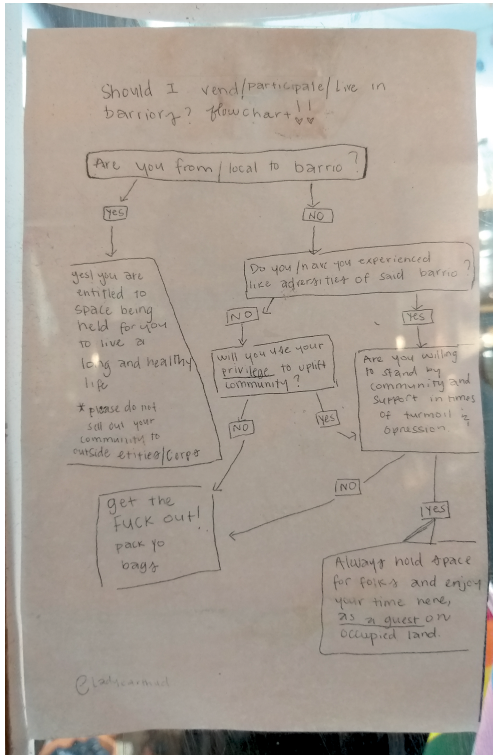 Should I vend/participate/live in
barrios? flowchart!!
Are you from/local to barrio?
yes
NO
yes! you are
entitled to
space being
held for you
to live a
long and healthy
life
* please do not
sell out your
community to
outside etities/Corps
Do you/have you experienced
like adversities of said barrio?
NO
yes
will you use your
privilege to uplift
community?
Are you willing
to stand by
community and
support in times
of turmoil &
opression?
NO
yes
NO
yes
get the
FUCK out!
pack yo
bags
Always hold space
for folks and enjoy
your time here,
as a guest on
occupied land.